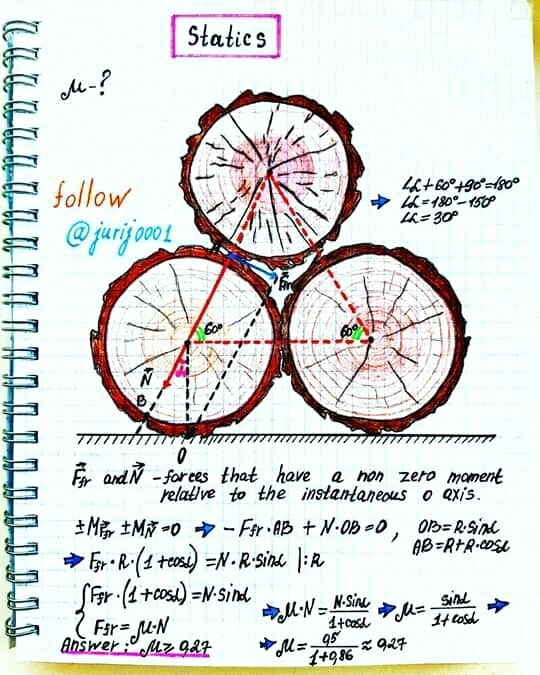 Statics
μ-?
follow
@jurij0001
∠α+60°+90°=180°
∠α=180°-150°
∠α=30°
A
F⃗fr
60°
60°
N⃗
α
B
O
F⃗fr and N⃗ -forces that have a non zero moment
relative to the instantaneous o axis.
±M_F⃗fr ±M_N⃗=0 ➡ -Ffr·AB + N·OB=0, OB=R·sinα
AB=R+R·cosα
➡ Ffr·R·(1+cosα)=N·R·sinα |:R
{Ffr·(1+cosα)=N·sinα
Ffr=μ·N
➡ μ·N=N·sinα/1+cosα ➡ μ=sinα/1+cosα ➡
➡ μ=0,5/1+0,86≈0,27
Answer: μ≥0,27